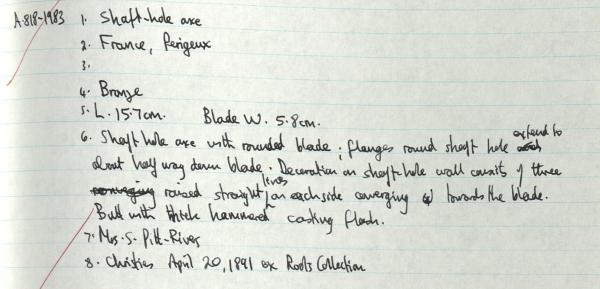 A.818-1983 1. Shaft-hole axe
2. France, Perigeux
3.
4. Bronze
5. L. 15.7cm. Blade W. 5.8cm.
6. Shaft hole axe with rounded blade; flanges round shaft hole extend to
about half way down blade. Decoration on shaft-hole wall consists of three
converging raised straight lines on each side converging towards the blade.
Butt with thick hammered casting flash.
7. Mrs. S. Pitt-Rivers
8. Christies April 20, 1891 ex Roots Collection